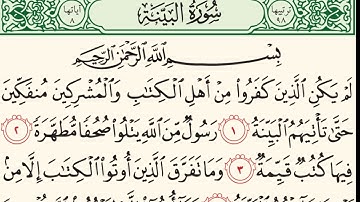 ترتيبها ٩٨ سُورَةُ البَيِّنَةِ آياتها ٨
بِسْمِ اللَّهِ الرَّحْمَٰنِ الرَّحِيمِ
لَمْ يَكُنِ الَّذِينَ كَفَرُوا مِنْ أَهْلِ الْكِتَابِ وَالْمُشْرِكِينَ مُنفَكِّينَ
حَتَّىٰ تَأْتِيَهُمُ الْبَيِّنَةُ ١ رَسُولٌ مِّنَ اللَّهِ يَتْلُوا صُحُفًا مُّطَهَّرَةً ٢
فِيهَا كُتُبٌ قَيِّمَةٌ ٣ وَمَا تَفَرَّقَ الَّذِينَ أُوتُوا الْكِتَابَ إِلَّا مِنْ